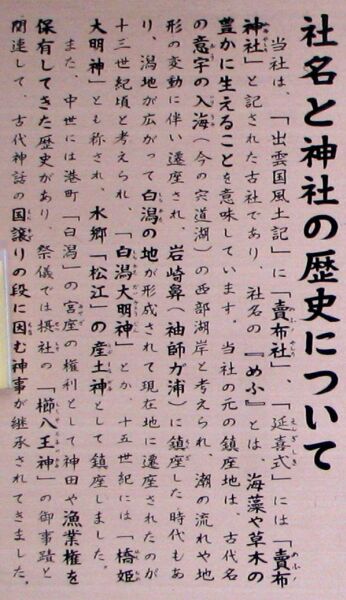 社名と神社の歴史について
当社は、「出雲国風土記」に「賣布社」、「延喜式」には「賣布
神社」と記された古社であり、社名の『めふ』とは、海藻や草木の
豊かに生えることを意味しています。当社の元の鎮座地は、古代名
の意宇の入海(今の宍道湖)の西部湖岸と考えられ、潮の流れや地
形の変動に伴い遷座され、岩崎鼻(袖師ガ浦)に鎮座した時代もあ
り、潟地が広がって白潟の地が形成されて現在地に遷座されたのが
十三世紀頃と考えられ「白潟大明神」とか、十五世紀には「橋姫
大明神」とも称され、水郷「松江」の産土神として鎮座しました。
また、中世には港町「白潟」の宮座の権利として神田や漁業権を
保有してきた歴史があり、祭儀では摂社の「櫛八玉神」の御事蹟と
関連して、古代神話の国譲りの段に因む神事が継承されてきました。